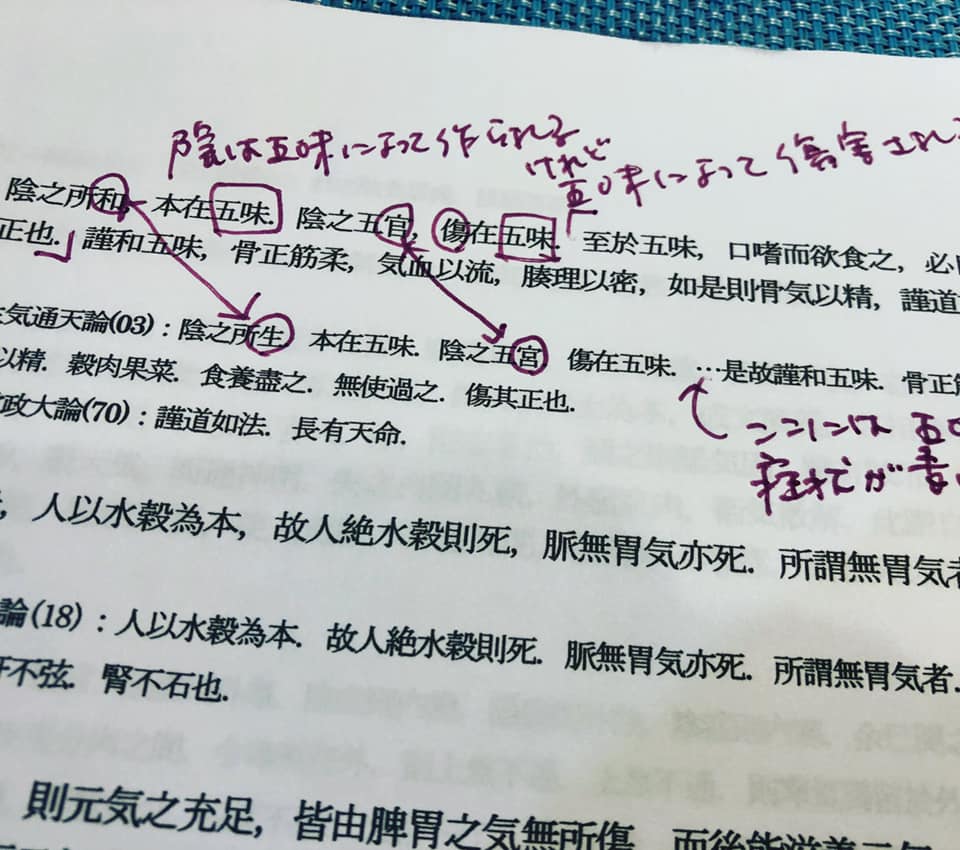 陰は五味によって作られる
けれど
五味によって傷害される
陰之所和, 本在五味. 陰之五官, 傷在五味. 至於五味, 口嗜而欲食之, 必自
正也.」 謹和五味, 骨正筋柔, 気血以流, 腠理以密, 如是則骨気以精, 謹道
気通天論(03) : 陰之所生. 本在五味. 陰之五宮. 傷在五味. …是故謹和五味. 骨正筋
以精. 穀肉果菜. 食養盡之. 無使過之. 傷其正也.
政大論(70) : 謹道如法. 長有天命.
ここには 五
が
人以水穀為本, 故人絶水穀則死, 脈無胃気亦死. 所謂無胃気者
論(18) : 人以水穀為本. 故人絶水穀則死. 脈無胃気亦死. 所謂無胃気者.
肝不弦. 腎不石也.
則元気之充足, 皆由脾胃之気無所傷, 而後能滋養元気